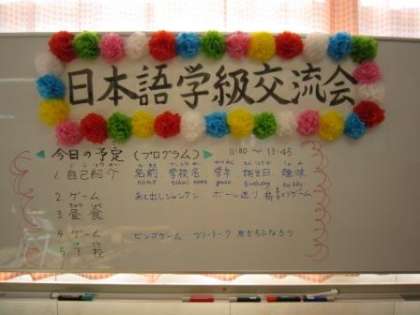 日本語学級交流会
今日の予定 (プログラム) 11:00 〜 13:45
1 自己紹介 名前 学校名 学年 誕生日 趣味
name school name grade birthday hobby
2 ゲーム あと出しジャンケン ボール送り
3 昼食
4 ゲーム ビンゴゲーム フリートーク 友だちになろう
5 下校